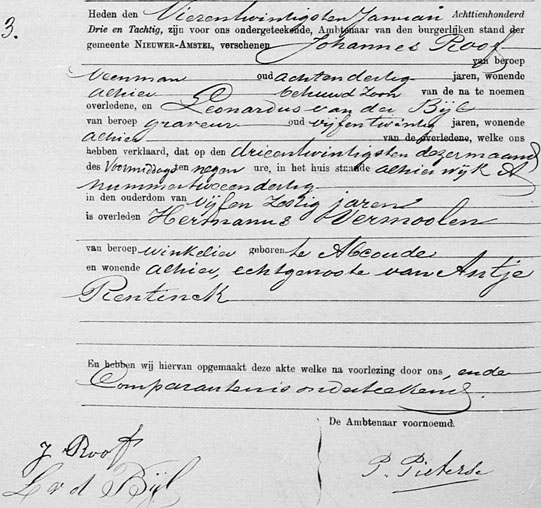 3.
Heden den Vierentwintigsten Januari Achttienhonderd
Drie en Tachtig, zijn voor ons ondergeteekende, Ambtenaar van den burgerlijken stand der
gemeente NIEUWER-AMSTEL, verschenen Johannes Roof
van beroep
veenman oud achtendertig jaren, wonende
alhier behuwd zoon van de na te noemen
overledene, en Leonardus van der Bijl
van beroep graveur oud vijfentwintig jaren, wonende
alhier van de overledene, welke ons
hebben verklaard, dat op den drieentwintigsten dezer maand
des Voormiddags ten negen ure, in het huis staande alhier wijk A
nummer tweeendertig
in den ouderdom van vijfen zestig jaren
is overleden Hermanus Vermoolen
van beroep winkelier geboren te Abcoude
en wonende alhier, echtgenoote van Antje
Rentinck
En hebben wij hiervan opgemaakt deze akte welke na voorlezing door ons, en de
Comparanten is onderteekend.
De Ambtenaar voornoemd.
J Roof
L v d Bijl
P. Pieterse